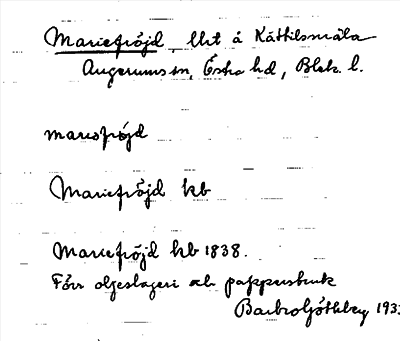 Mariefröjd, lht å Kättilsmåla
Augerums sn, Östra hd, Blek. l.
mariəfröjd
Mariefröjd kb
Mariefröjd kb 1838.
Förr oljeslageri och pappersbruk
Barbro Göthberg